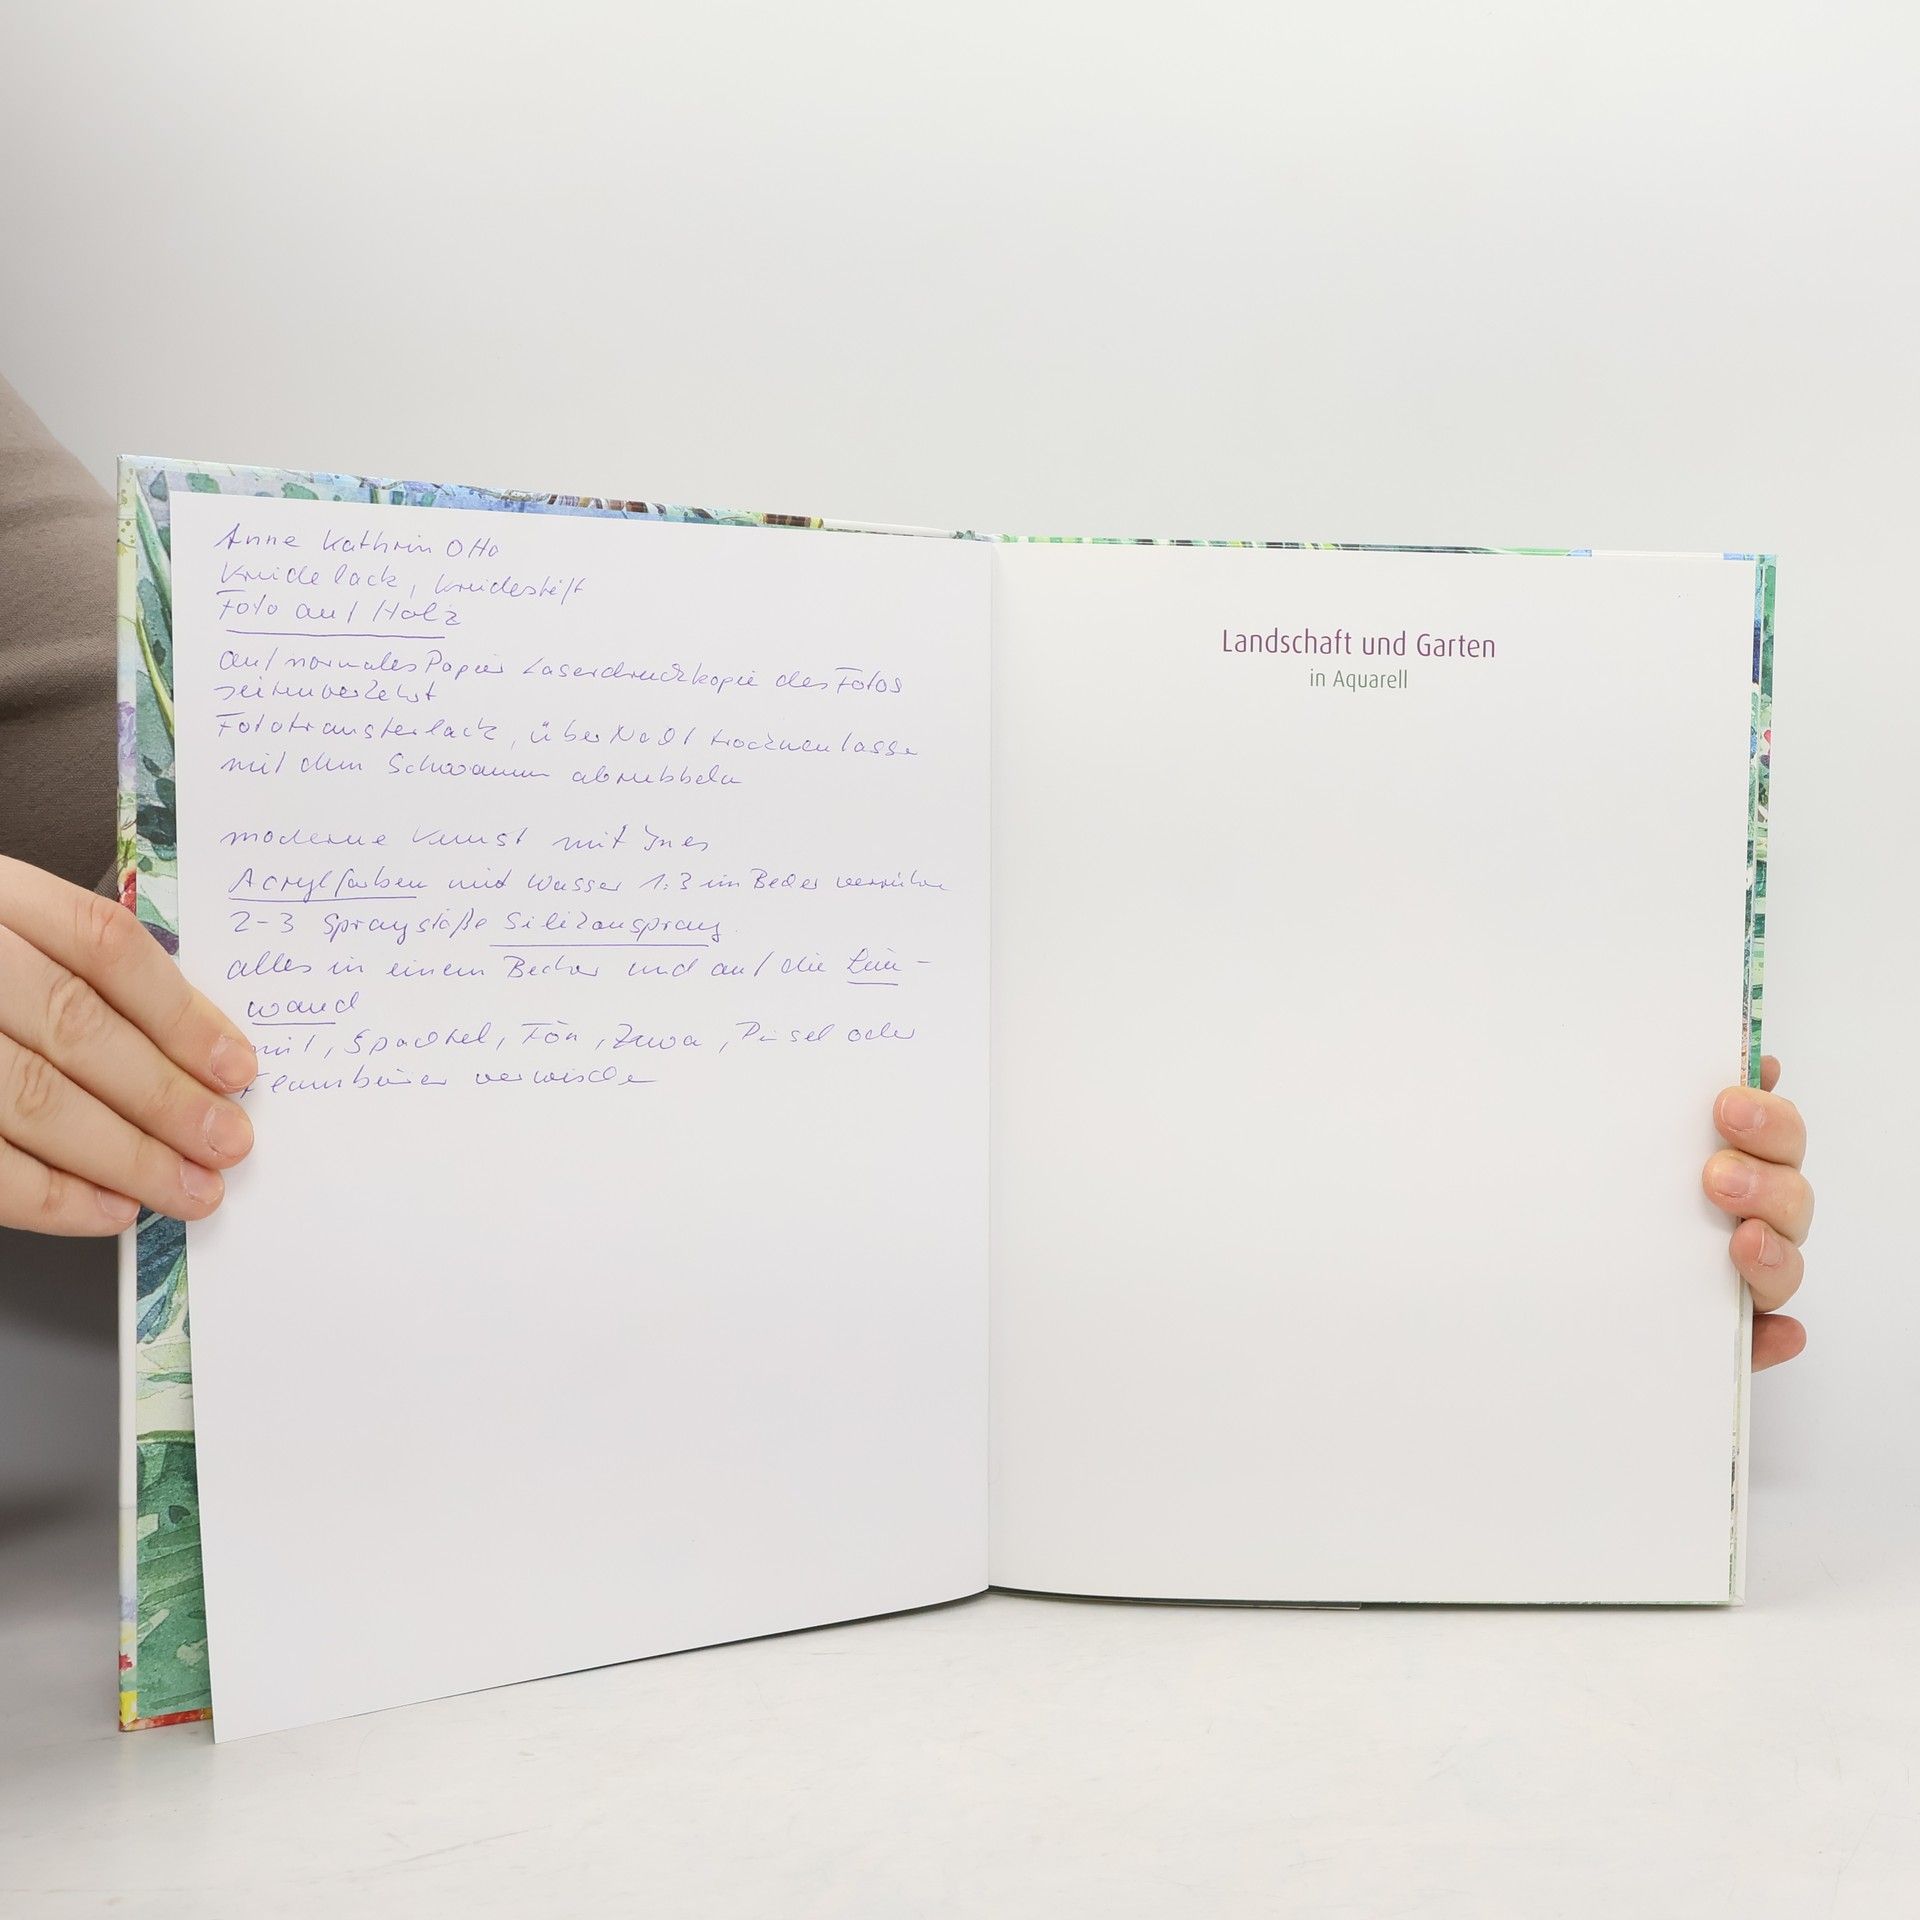 Anne Kathrin Otto
Kreidelack, Kreidestift
Foto auf Holz
auf normales Papier Laserdruckkopie des Fotos
seitenverkehrt
Fototransferlack, über Nacht trocknen lassen
mit dem Schwamm abrubbeln
moderne Kunst mit Ines
Acrylfarben mit Wasser 1:3 im Becher verrühren
2-3 Spraystöße Silikonspray
alles in einem Becher und auf die Lein-
wand
mit, Spachtel, Fön, Zewa, Pinsel oder
verwischen
Landschaft und Garten
in Aquarell